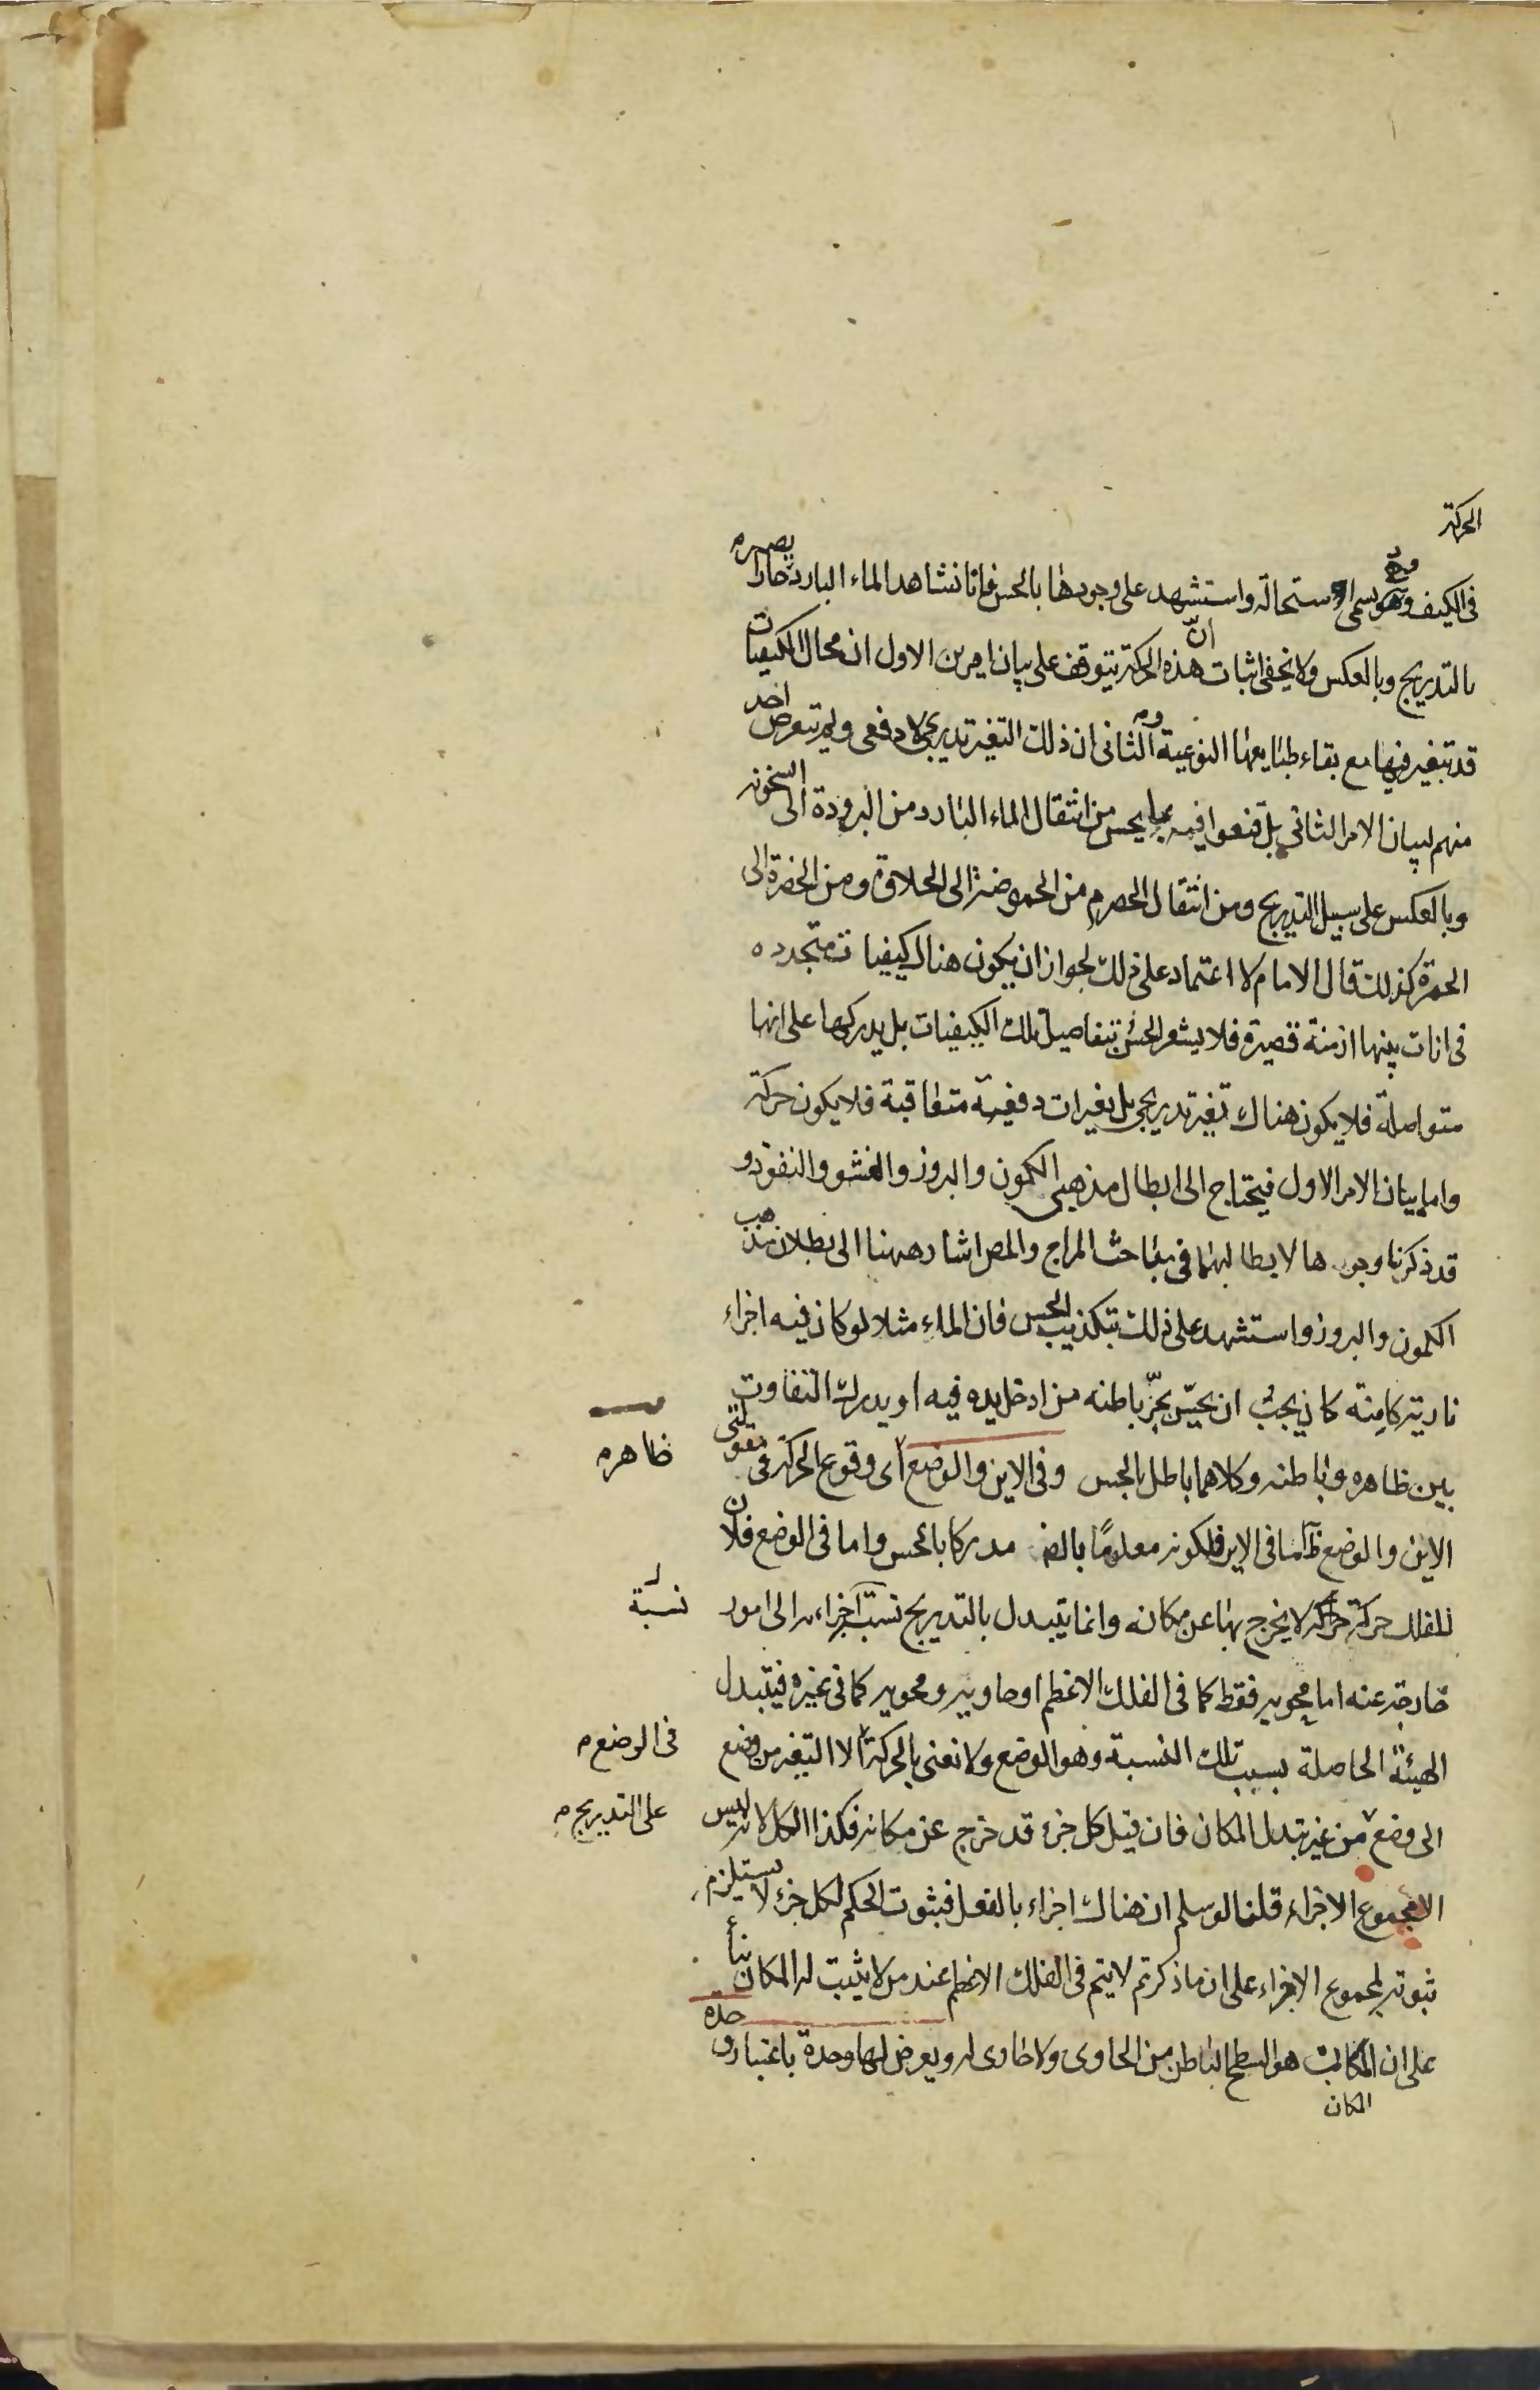 الحركة
فى الكيف وهو يسمى استحالة واستشهد على وجودها بالحس فانا نشاهد الماء البارد يصير حارا
بالتدريج وبالعكس ولا يخفى ان اثبات هذه الحركة يتوقف على بيان امرين الاول ان محال الكيفيات
قد تتغير فيها مع بقاء طبايعها النوعية والثانى ان ذلك التغير تدريجى لا دفعى ولم يتعرض احد
منهم لبيان الامر الثانى بل قنعوا فيه بما يحس من انتقال الماء البارد من البرودة الى السخونه
وبالعكس على سبيل التدريج ومن انتقال الحصرم من الحموضة الى الحلاوة ومن الخضرة الى
الحمرة كذلك قال الامام لا اعتماد على ذلك لجواز ان يكون هناك كيفيات متجدده
فى انات بينها ازمنة قصيرة فلا يشعر الحس بتفاصيل تلك الكيفيات بل يدركها على انها
متواصلة فلا يكون هناك تغير تدريجى بل تغيرات دفعية متعاقبة فلا يكون حركة
واما بيان الامر الاول فيحتاج الى ابطال مذهبى الكمون والبروز والفشو والنفوذ و
قد ذكرنا وجوها لابطالهما فى مباحث المزاج والمص اشار ههنا الى بطلان مذهب
الكمون والبروز واستشهد على ذلك بتكذيب الحس فان الماء مثلا لو كان فيه اجزاء
نارية كامنة كان يجب ان يحس بحر باطنه من ادخل يده فيه او يدرك التفاوت
بين ظاهره وباطنه وكلاهما باطل بالحس وفى الاين والوضع اى وقوع الحركة فى مقولتى
ظاهر م
الاين والوضع ظ اما فى الاين فلكونه معلوما بالض مدركا بالحس واما فى الوضع فلان
للفلك حركة حركة لا يخرج بها عن مكانه وانما يتبدل بالتدريج نسب اجزاءه الى امور
نسبة
خارجة عنه اما محويه فقط كما فى الفلك الاعظم او حاويه ومحويه كما فى غيره فيتبدل
الهيئة الحاصلة بسبب تلك النسبة وهو الوضع ولا نعنى بالحركة الا التغير من وضع
فى الوضع م
الى وضع من غير تبدل المكان فان قيل كل جزء قد خرج عن مكانه فكذا الكل لانه ليس
على التدريج م
الا مجموع الاجزاء قلنا لو سلم ان هناك اجزاء بالفعل فثبوت الحكم لكل جزء لا يستلزم
ثبوته لمجموع الاجزاء على ان ما ذكرتم لا يتم فى الفلك الاعظم عند من لا يثبت له المكان بنأ
على ان المكان هو السطح الباطن من الحاوى ولا حاوى له ويعرض لها وحدة باعتبار وحدة
المكان